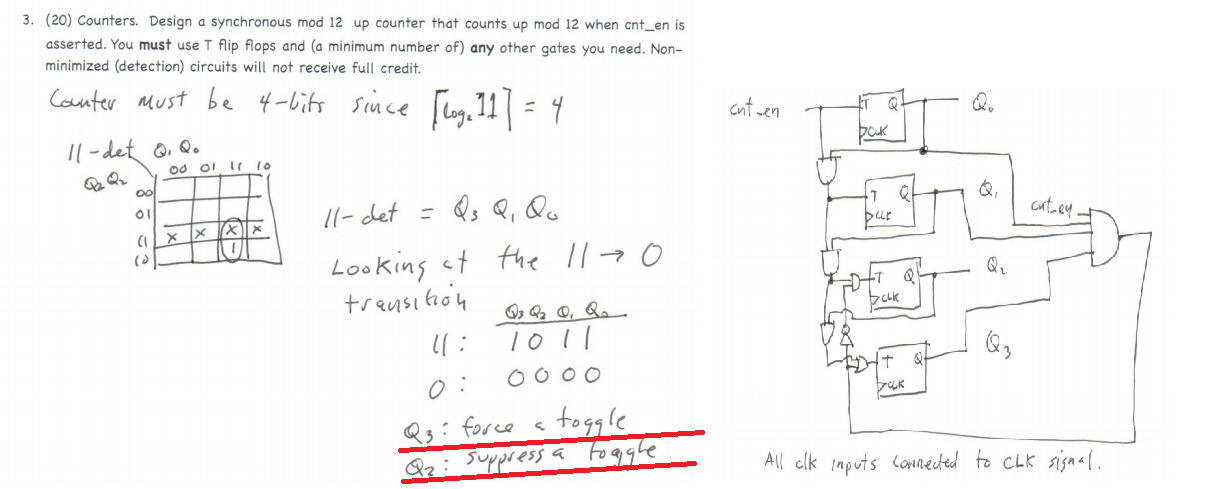 3. (20) Counters. Design a synchronous mod 12 up counter that counts up mod 12 when cnt_en is
asserted. You must use T flip flops and (a minimum number of) any other gates you need. Non-
minimized (detection) circuits will not receive full credit.
Counter must be 4-bits since ⌈log₂ 11⌉ = 4
11-det Q₁ Q₀
Q₃ Q₂
00 01 11 10
00
01
11 x x x x
10 1
11-det = Q₃ Q₁ Q₀
Looking at the 11 → 0
transition
Q₃ Q₂ Q₁ Q₀
11: 1011
0: 0000
Q₃: force a toggle
Q₂: suppress a toggle
cnt_en
T Q
CLK
Q₀
T Q
CLK
Q₁
cnt_en
T Q
CLK
Q₂
T Q
CLK
Q₃
All clk inputs connected to CLK signal.